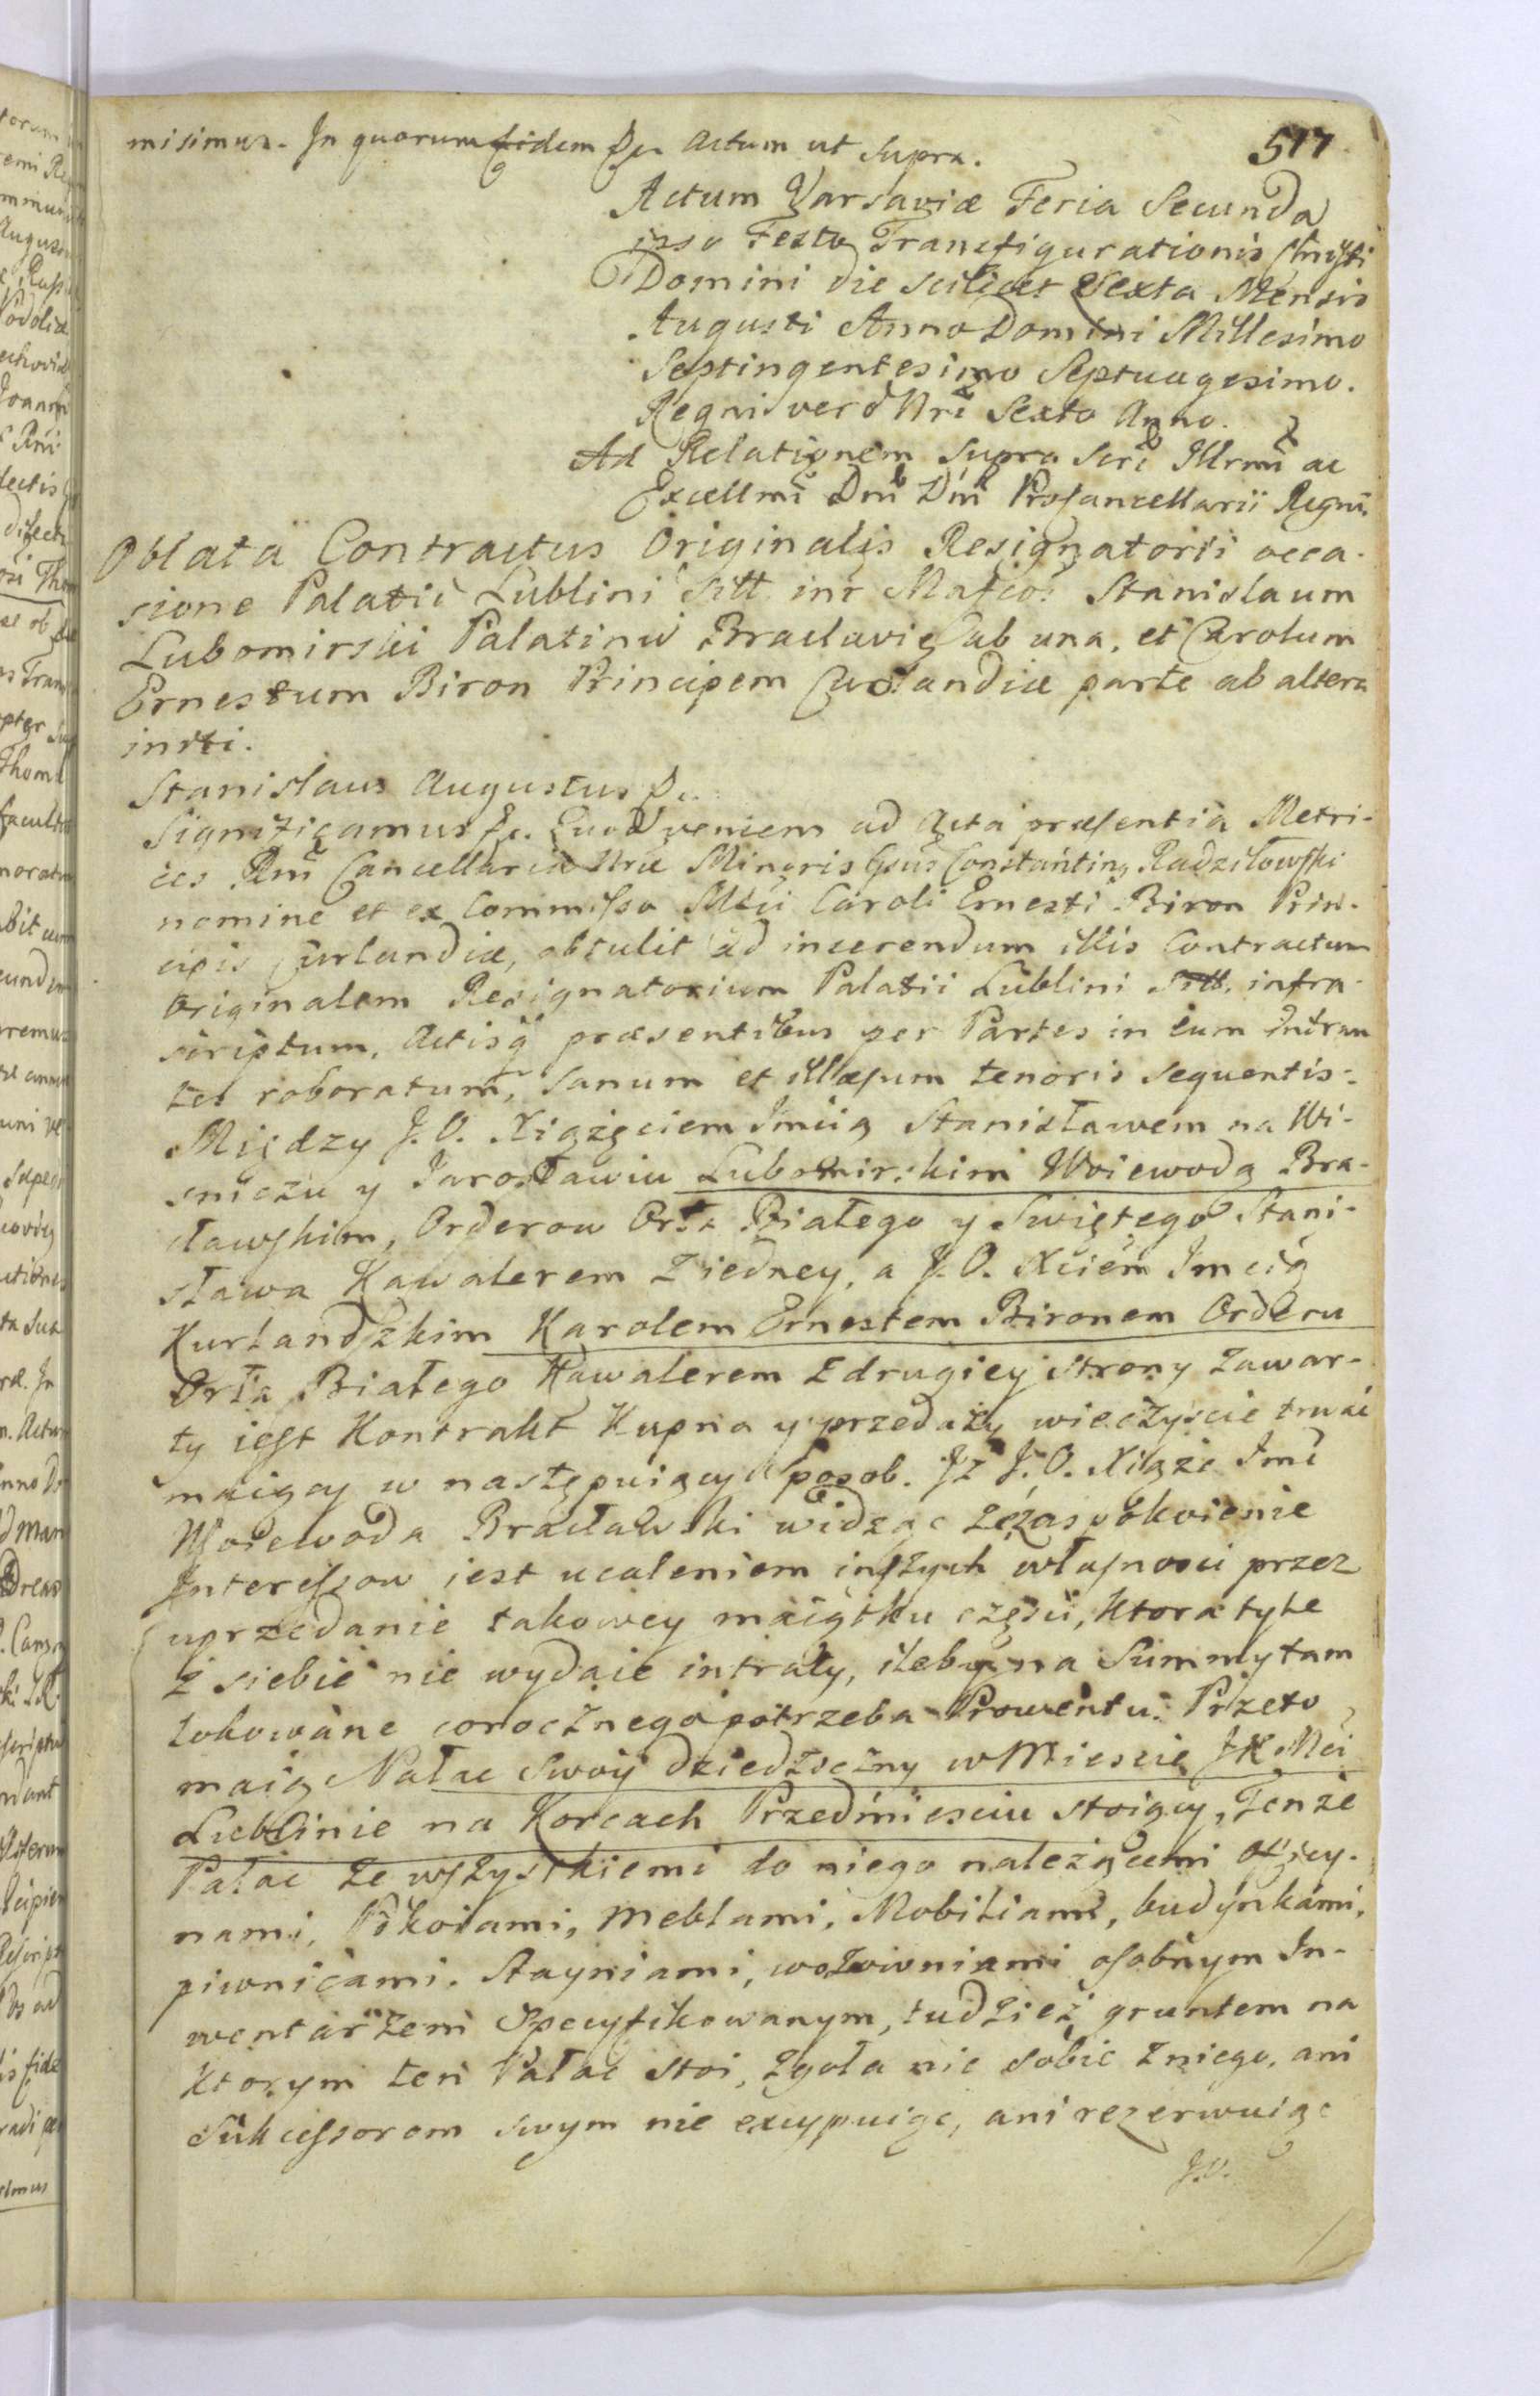 misimus. In quorum fidem &c. Actum ut supra.
517
Actum Varsaviæ Feria Secunda
ipso Festo Transfigurationis Chrysti
Domini die scilicet Sexta Mensis
Augusti Anno Domini Millesimo
Septingentesimo Septuagesimo.
Regni vero Nri Sexto Anno.
Ad Relationem supra scri Illrmi ac
Excellmi Dni Dni ProCancellarii Regni.
Oblata Contractus Originalis Resignatorii occa-
sione Palatii Lublini sitt. inr Mafcos Stanislaum
Lubomirski Palatinū Braclavię ab una, et Carolum
Ernestum Biron Principem Curlandiæ parte ab altera
initi.
Stanislaus Augustus &c.
Significamus &c. Quod veniens ad Acta præsentia Metri-
ces Rni Cancellariæ Nræ Minoris Gsus Constanting Radziłowski
nomine et ex Commisso Mtci Caroli Ernesti Biron Prin-
cipis Curlandiæ, obtulit ad inserendum illis Contractum
Originalem Resignatorium Palatii Lublini sitt. infra-
scriptum, Actisq̃ præsentibus per Partes in eum Intran
tes roboratum, sanum et illæsum tenoris sequentis:
Między J. O. Xiążęciem Imcią Stanisławem na Wi-
sniczu y Jarosławiu Lubomirskim Woiewodą Bra-
cławskim, Orderow Orła Białego y Swiętego Stani-
sława Kawalerem z iedney, a J. O. Xciem Imcią
Kurlandzkim Karolem Ernestem Bironem Orderu
Orła Białego Kawalerem z drugiey strony zawar-
ty iest Kontrakt Kupna y przedaży wieczyscie trwać
maiący w następuiący sposob. Iż J. O. Xiąże Imc
Woiewoda Bracławski widząc że zaspokoienie
Interessow iest ucaleniem inszych własnosci przez
uprzedanie takowey maiątku części, ktora tyle
z siebie nie wydaie intraty, ileby na Summy tam
lokowane corocznego potrzeba Prowentu: Przeto
maią Pałac swoy dziedziczny w Miescie JK Mci
Lublinie na Korcach Przedmiesciu stoiący, Tenże
Pałac ze wszystkiemi do niego należącemi oficy-
nami, Pokoiami, Meblami, Mobiliami, budynkami,
piwnicami. Stayniami, wozowniami osobnym In-
wentarzem Specyfikowanym, tudzież gruntem na
Ktorym ten Pałac stoi, zgoła nic sobie z niego, ani
Sukcessorom swym nie excypuiąc, ani rezerwuiąc
J. O.